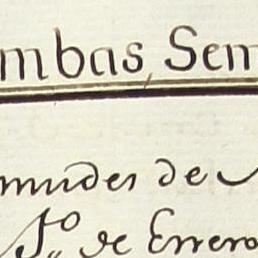 mbas Sem
mudes de
1º de Errero